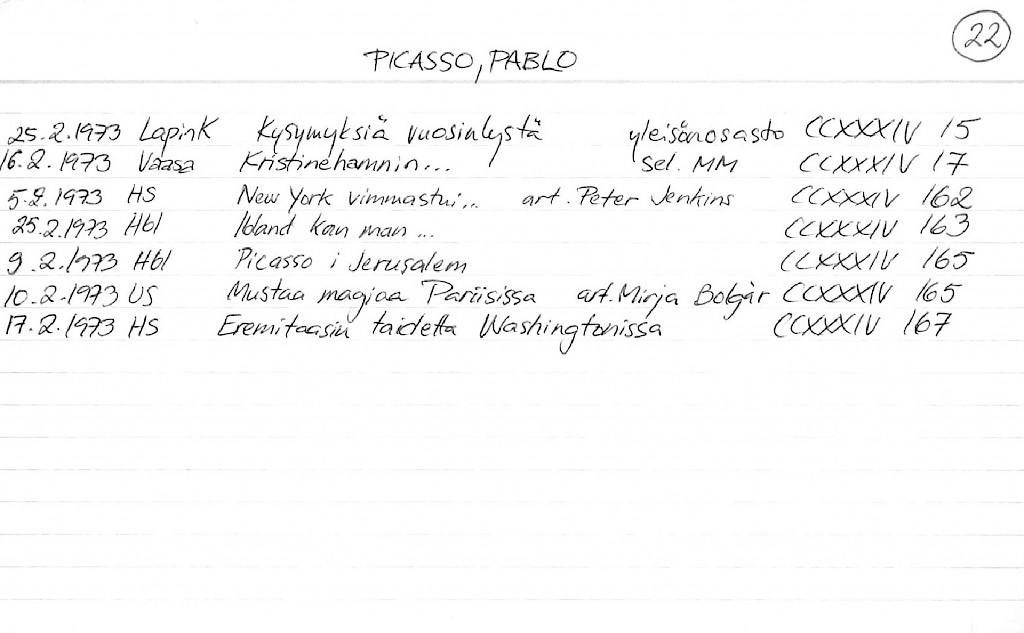 22
PICASSO, PABLO
25.2.1973 LapinK Kysymyksiä vuosinäystä yleisönosasto CCXXXIV 15
16.2.1973 Vaasa Kristinehamnin... sel. MM CCXXXIV 17
5.2.1973 HS New York vimmastui... art. Peter Jenkins CCXXXIV 162
25.2.1973 Hbl Ibland kan man ... CCXXXIV 163
9.2.1973 Hbl Picasso i Jerusalem CCXXXIV 165
10.2.1973 US Mustaa magiaa Pariisissa art. Mirja Bolgár CCXXXIV 165
17.2.1973 HS Eremitaasin taidetta Washingtonissa CCXXXIV 167